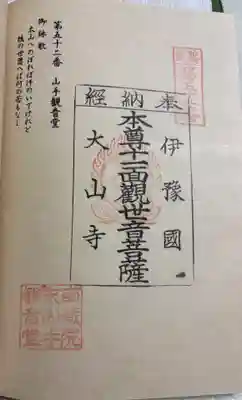 第五十二番 山手観音堂
御詠歌
太山へのぼれば汗のいでけれど
後の世思へば何の苦もなし
奉納経
伊豫國
本尊十一面観世音菩薩
大山寺